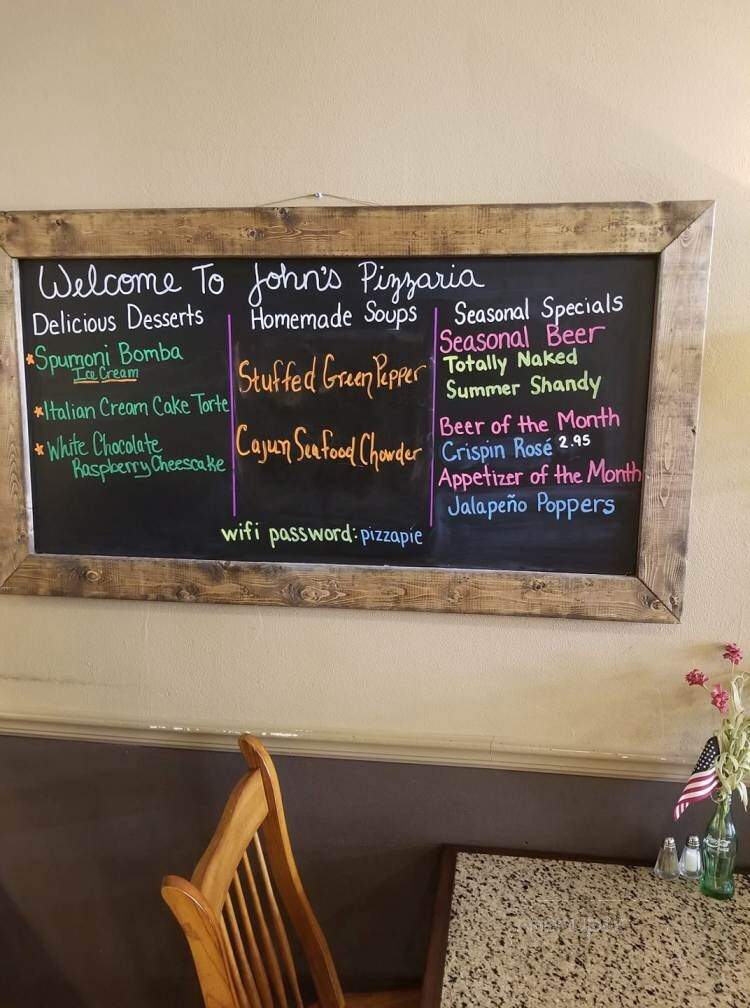 Welcome To John's Pizzaria
Delicious Desserts
Spumoni Bomba
Ice Cream
Italian Cream Cake Torte
White Chocolate
Raspberry Cheescake
Homemade Soups
Stuffed Green Pepper
Cajun Seafood Chowder
Seasonal Specials
Seasonal Beer
Totally Naked
Summer Shandy
Beer of the Month
Crispin Rosé 2.95
Appetizer of the Month
Jalapeño Poppers
wifi password: pizzapie